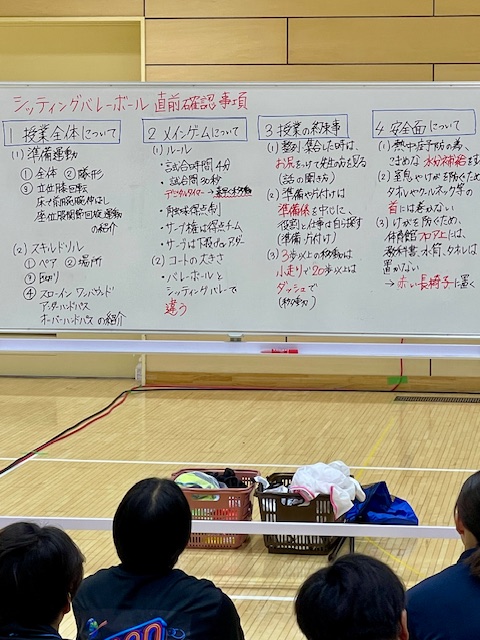 シッティングバレーボール 直前確認事項
1 授業全体について
(1) 準備運動
① 全体 ② 隊形
③ 立位膝回転
座位股関節回旋運動
の紹介
(2) スキルドリル
① ペア ② 場所
③
④ スローイン ワンバウンド
アンダーハンドパス
オーバーハンドパス の紹介
2 メインゲームについて
(1) ルール
・試合時間 4分
・試合間 30秒
デジタルタイマー→
・得点制
・サーブ権は得点チーム
・サーブは下投げorアンダー
(2) コートの大きさ
・バレーボールと
シッティングバレーで
違う
3 授業の約束事
(1) 整列・集合した時は、
お尻をつけて先生の方を見る
(話の聞き方)
(2) 準備や片付けは
準備係を中心に、
役割と仕事は自ら探す
(準備・片付け)
(3) 3歩以上の移動は
小走り、20歩以上は
ダッシュで
(移動)
4 安全面について
(1) 熱中症予防の為、
こまめな水分補給を
(2) 窒息やけがを防ぐため
タオルやクールネック等の
首には巻かない
(3) けがを防ぐため、
体育館フロア上には、
教科書、水筒、タオルは
置かない
→ 赤い長椅子に置く